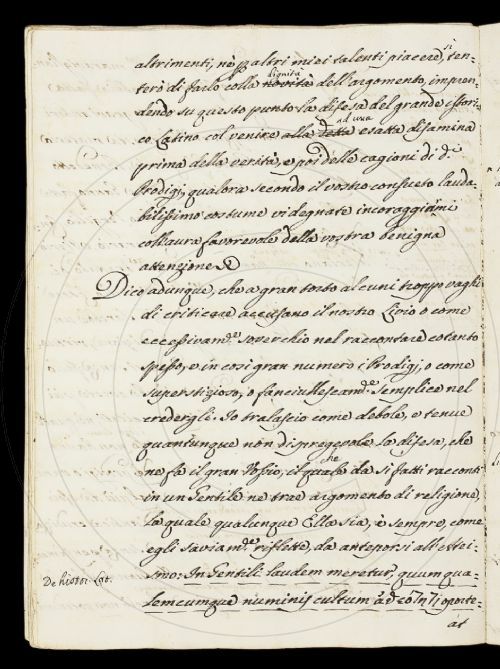 altrimenti, nè p altri miei talenti piacere, si ten-
terò di farlo colla novità dignità dell'argomento, impren-
dendo su questo punto la difesa del grande istori-
co Latino col venire alla detta ad una esatta disamina
prima della verità, e poi delle cagioni di d.i
Prodigj, qualora secondo il vostro consueto lauda-
bilissimo costume vi degnate incoraggirmi
coll'aura favorevole della vostra benigna
attenzione.
Dico adunque, che a gran torto alcuni troppo vaghi
di criticare accusano il nostro Livio o come
eccessivam.e soverchio nel raccontare cotanto
spesso, e in così gran numero i Prodigj, o come
superstizioso, o fanciullescam.e semplice nel
credergli. Io tralascio come debole, e tenue
quantunque non dispregevole la difesa, che
ne fa il gran Vossio, il quale che da sì fatti racconti
in un Gentile ne trae argomento di religione,
la quale qualunque Ella sia, è sempre, come
egli saviam.e riflette, da anteporsi all'Atei-
smo: In Gentili laudem meretur, quum qua-
De histor. Lat.
lemcumque numinis cultum
oporte-
at